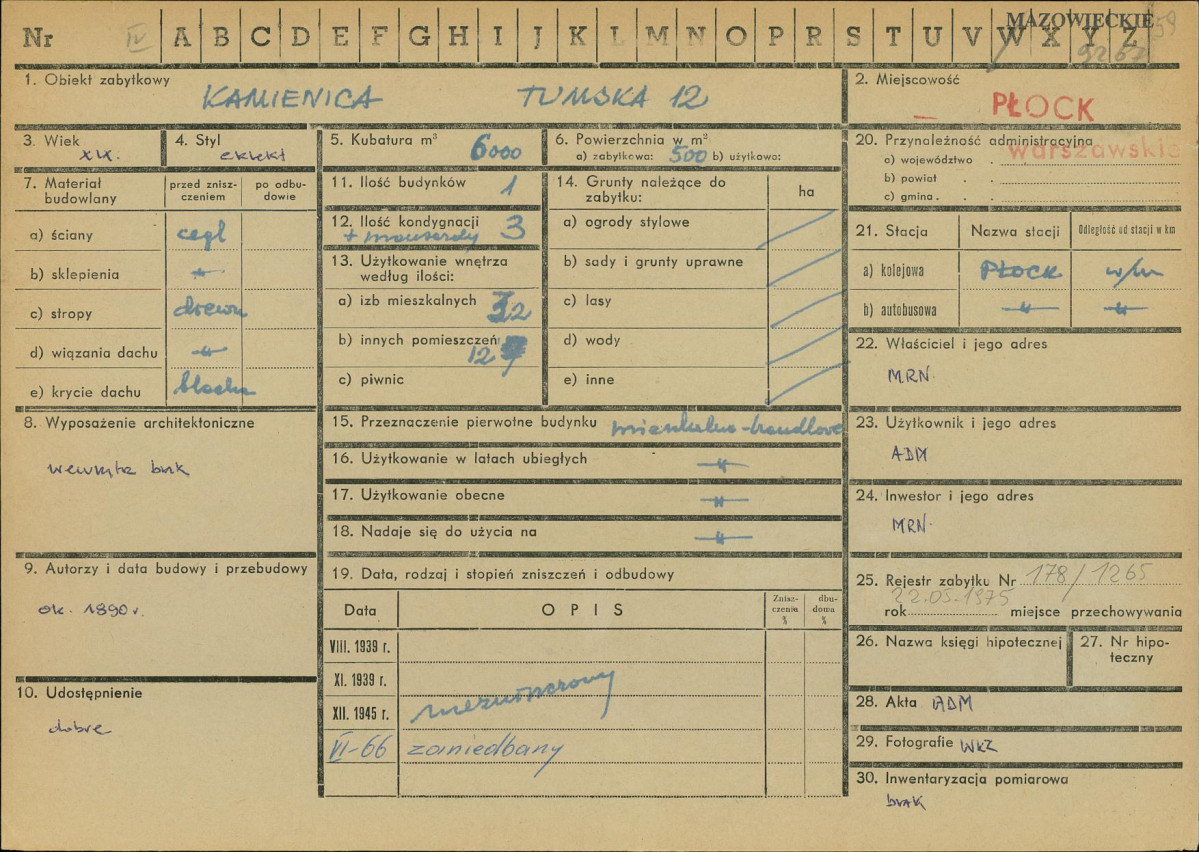 MAZOWIECKIE
Nr IV A B C D E F G H I J K L M N O P R S T U V W X Y Z
1. Obiekt zabytkowy
KAMIENICA TUMSKA 12
2. Miejscowość
PŁOCK
3. Wiek
XIX.
4. Styl
eklekt
5. Kubatura m³ 6000
6. Powierzchnia w m²
a) zabytkowa: 500 b) użytkowa:
20. Przynależność administracyjna
warszawskie
a) województwo
b) powiat
c) gmina
7. Materiał budowlany
przed zniszczeniem
po odbudowie
a) ściany cegl
b) sklepienia -"-
c) stropy drewn
d) wiązania dachu -"-
e) krycie dachu blacha
11. Ilość budynków 1
12. Ilość kondygnacji 3
+ mansardy
13. Użytkowanie wnętrza
według ilości:
a) izb mieszkalnych 32
b) innych pomieszczeń
12
c) piwnic
14. Grunty należące do
zabytku:
ha
a) ogrody stylowe
b) sady i grunty uprawne
c) lasy
d) wody
e) inne
21. Stacja Nazwa stacji Odległość od stacji w km
a) kolejowa PŁOCK w/m
b) autobusowa -"- -"-
22. Właściciel i jego adres
MRN.
8. Wyposażenie architektoniczne
wewnątrz brak
15. Przeznaczenie pierwotne budynku mieszkalno-handlowe
16. Użytkowanie w latach ubiegłych -"-
17. Użytkowanie obecne -"-
18. Nadaje się do użycia na -"-
23. Użytkownik i jego adres
ADM
24. Inwestor i jego adres
MRN.
9. Autorzy i data budowy i przebudowy
ok. 1890 r.
10. Udostępnienie
dobre
19. Data, rodzaj i stopień zniszczeń i odbudowy
Data OPIS Zniszczenia % dbudowa %
VIII. 1939 r.
XI. 1939 r.
XII. 1945 r. niezniszczony
VI-66 zaniedbany
25. Rejestr zabytku Nr 178/1265
22.05.1975
rok miejsce przechowywania
26. Nazwa księgi hipotecznej
27. Nr hipoteczny
28. Akta ADM
29. Fotografie WKZ
30. Inwentaryzacja pomiarowa
brak